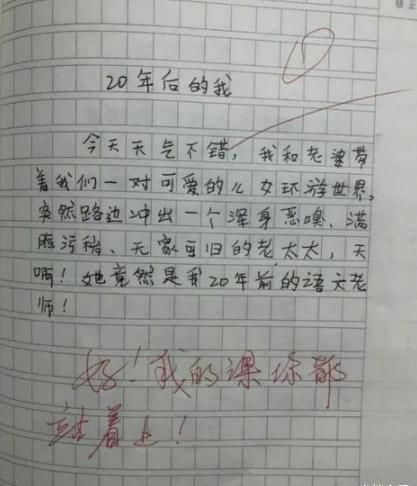 20年后的我
今天天气不错，我和老婆带
着我们一对可爱的儿女环游世界。
突然路边冲出一个浑身恶嗅、满
脸污秽、无家可归的老太太，天
啊！她竟然是我20年前的语文老
师！
好！我的课你都
站着上！